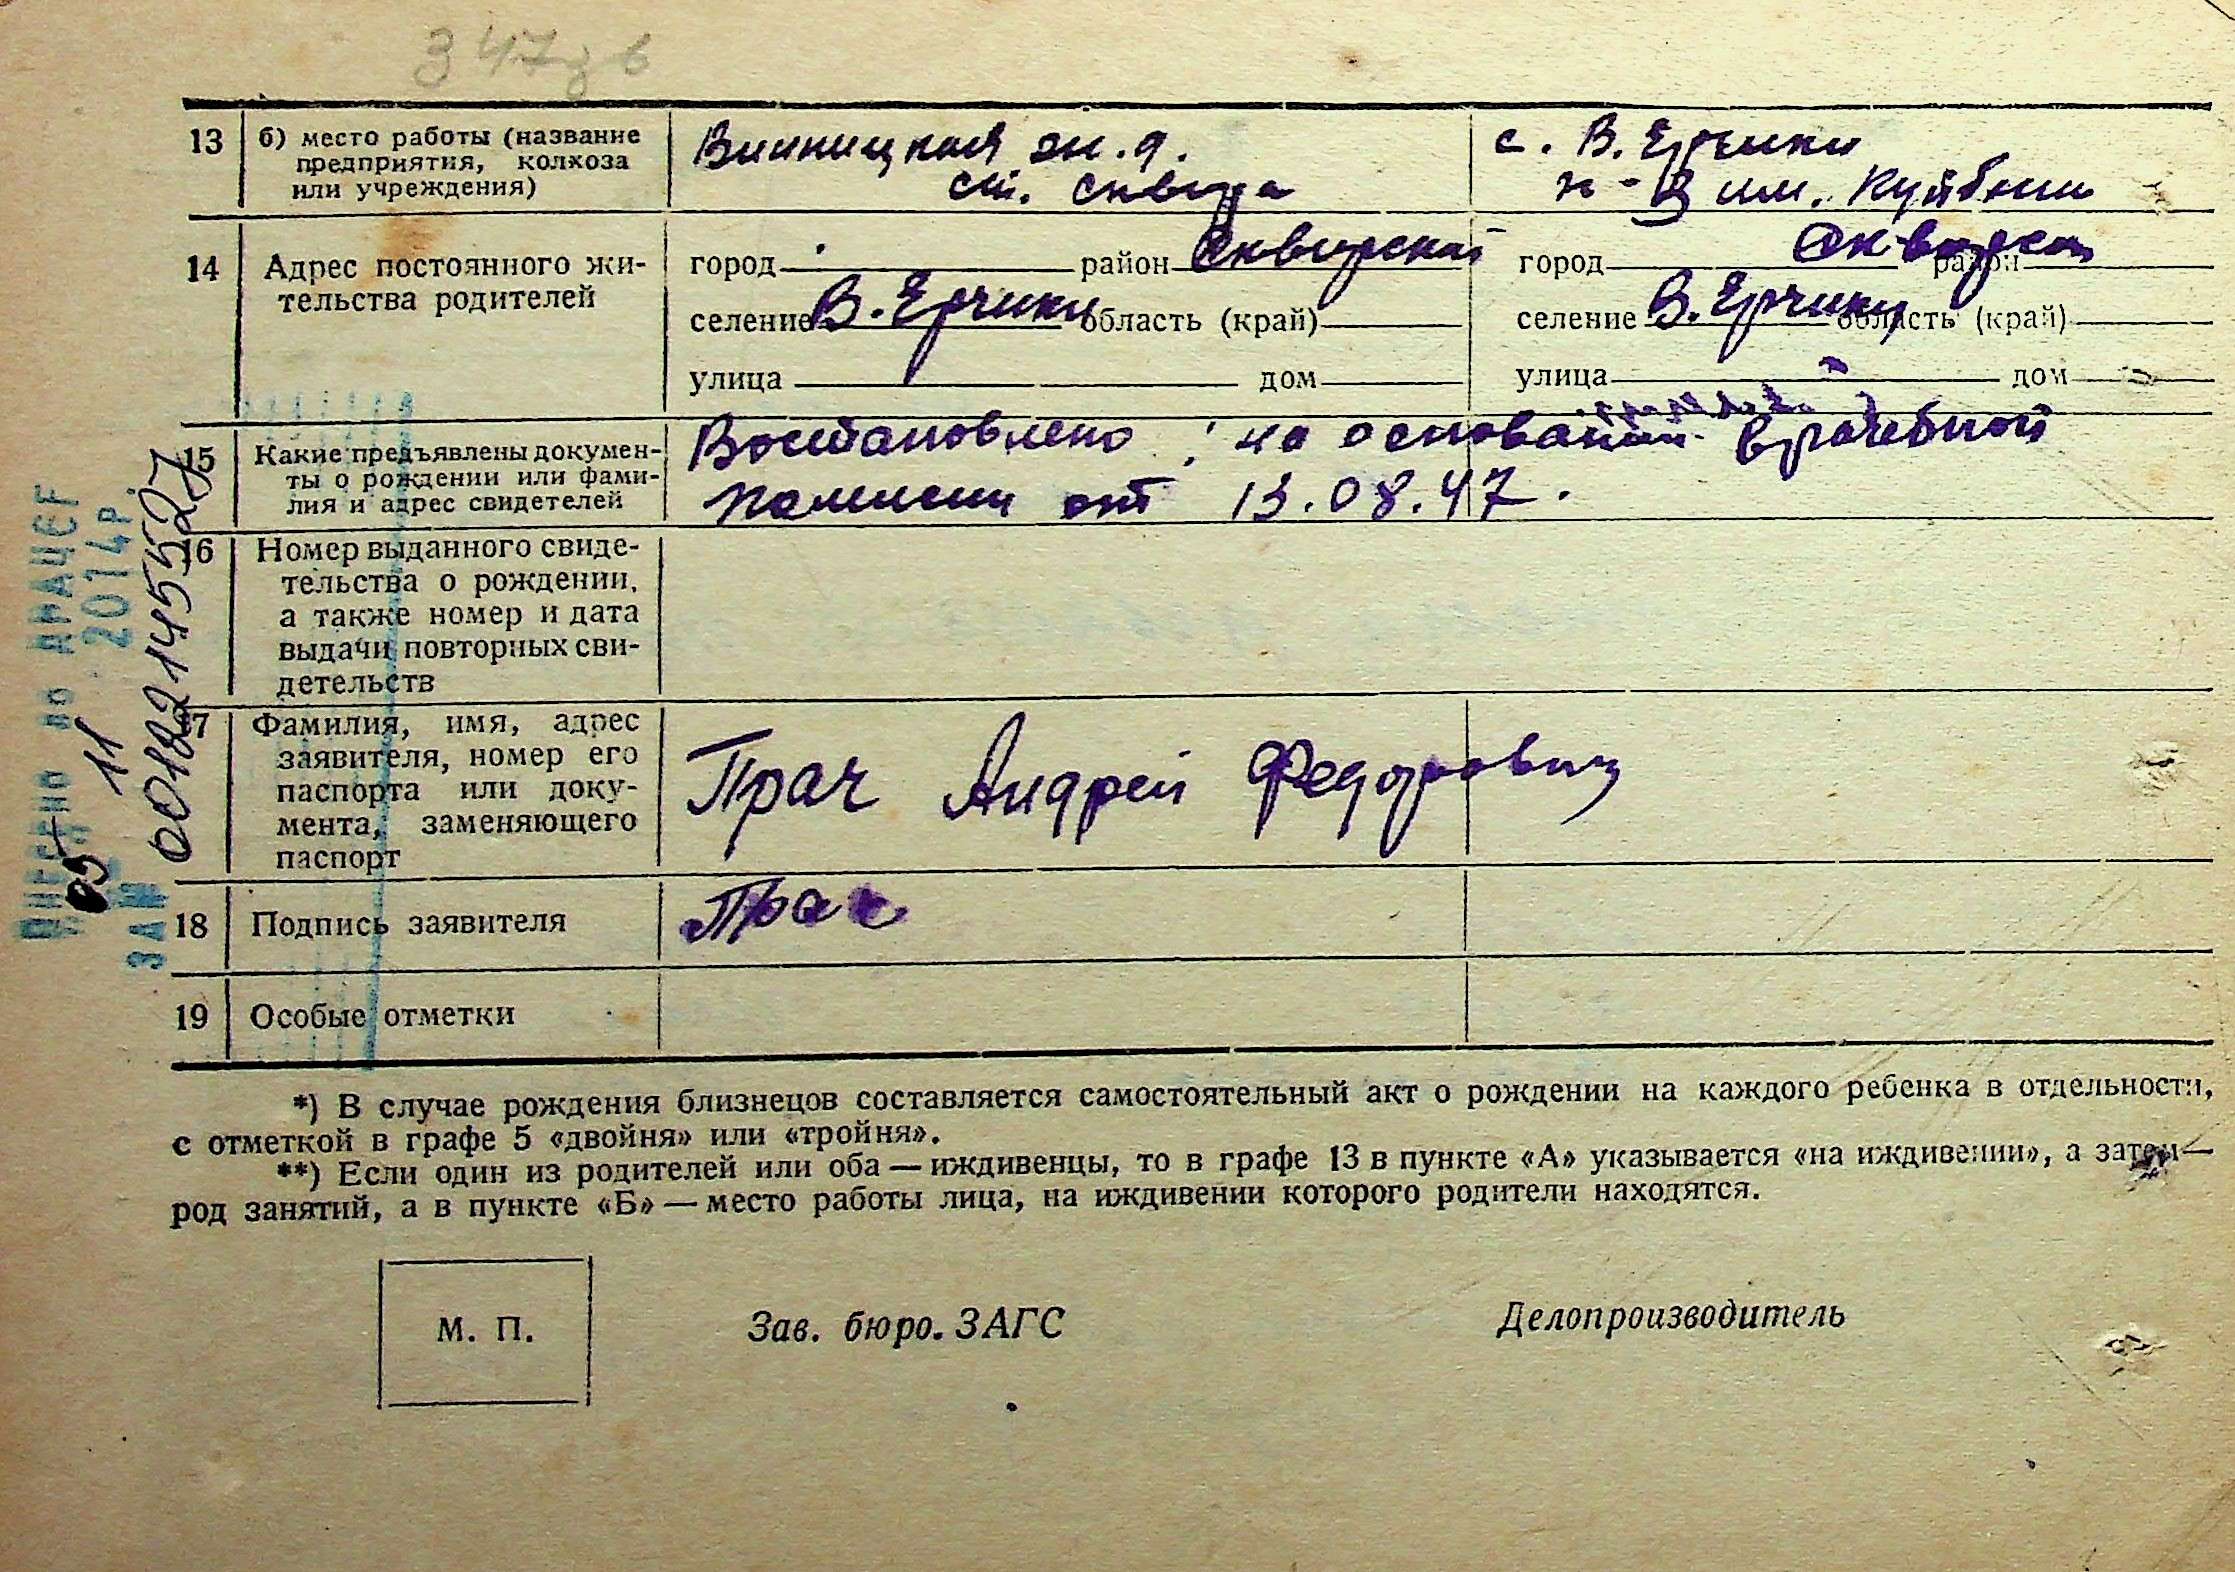 347зв
13 б) место работы (название
предприятия, колхоза
или учреждения)
Винницкая ж.д.
ст. Сквира
с. В. Ерчики
к-з им. Куйбыш
14 Адрес постоянного жи-
тельства родителей
город район Сквирский
селение В. Ерчики область (край)
улица дом
город район Сквирск
селение В. Ерчики область (край)
улица дом
15 Какие предъявлены докумен-
ты о рождении или фами-
лия и адрес свидетелей
Востановлено на основании врачебной
от 13.08.47.
16 Номер выданного свиде-
тельства о рождении,
а также номер и дата
выдачи повторных сви-
детельств
17 Фамилия, имя, адрес
заявителя, номер его
паспорта или доку-
мента, заменяющего
паспорт
Прач Андрей Федорович
18 Подпись заявителя
Прач
19 Особые отметки
ВНЕСЕНО ДО ДРАЦСГ
03 11 2014р.
ЗА № 00182145527
*) В случае рождения близнецов составляется самостоятельный акт о рождении на каждого ребенка в отдельности,
с отметкой в графе 5 «двойня» или «тройня».
**) Если один из родителей или оба — иждивенцы, то в графе 13 в пункте «А» указывается «на иждивении», а затем —
род занятий, а в пункте «Б» — место работы лица, на иждивении которого родители находятся.
М. П.
Зав. бюро. ЗАГС
Делопроизводитель